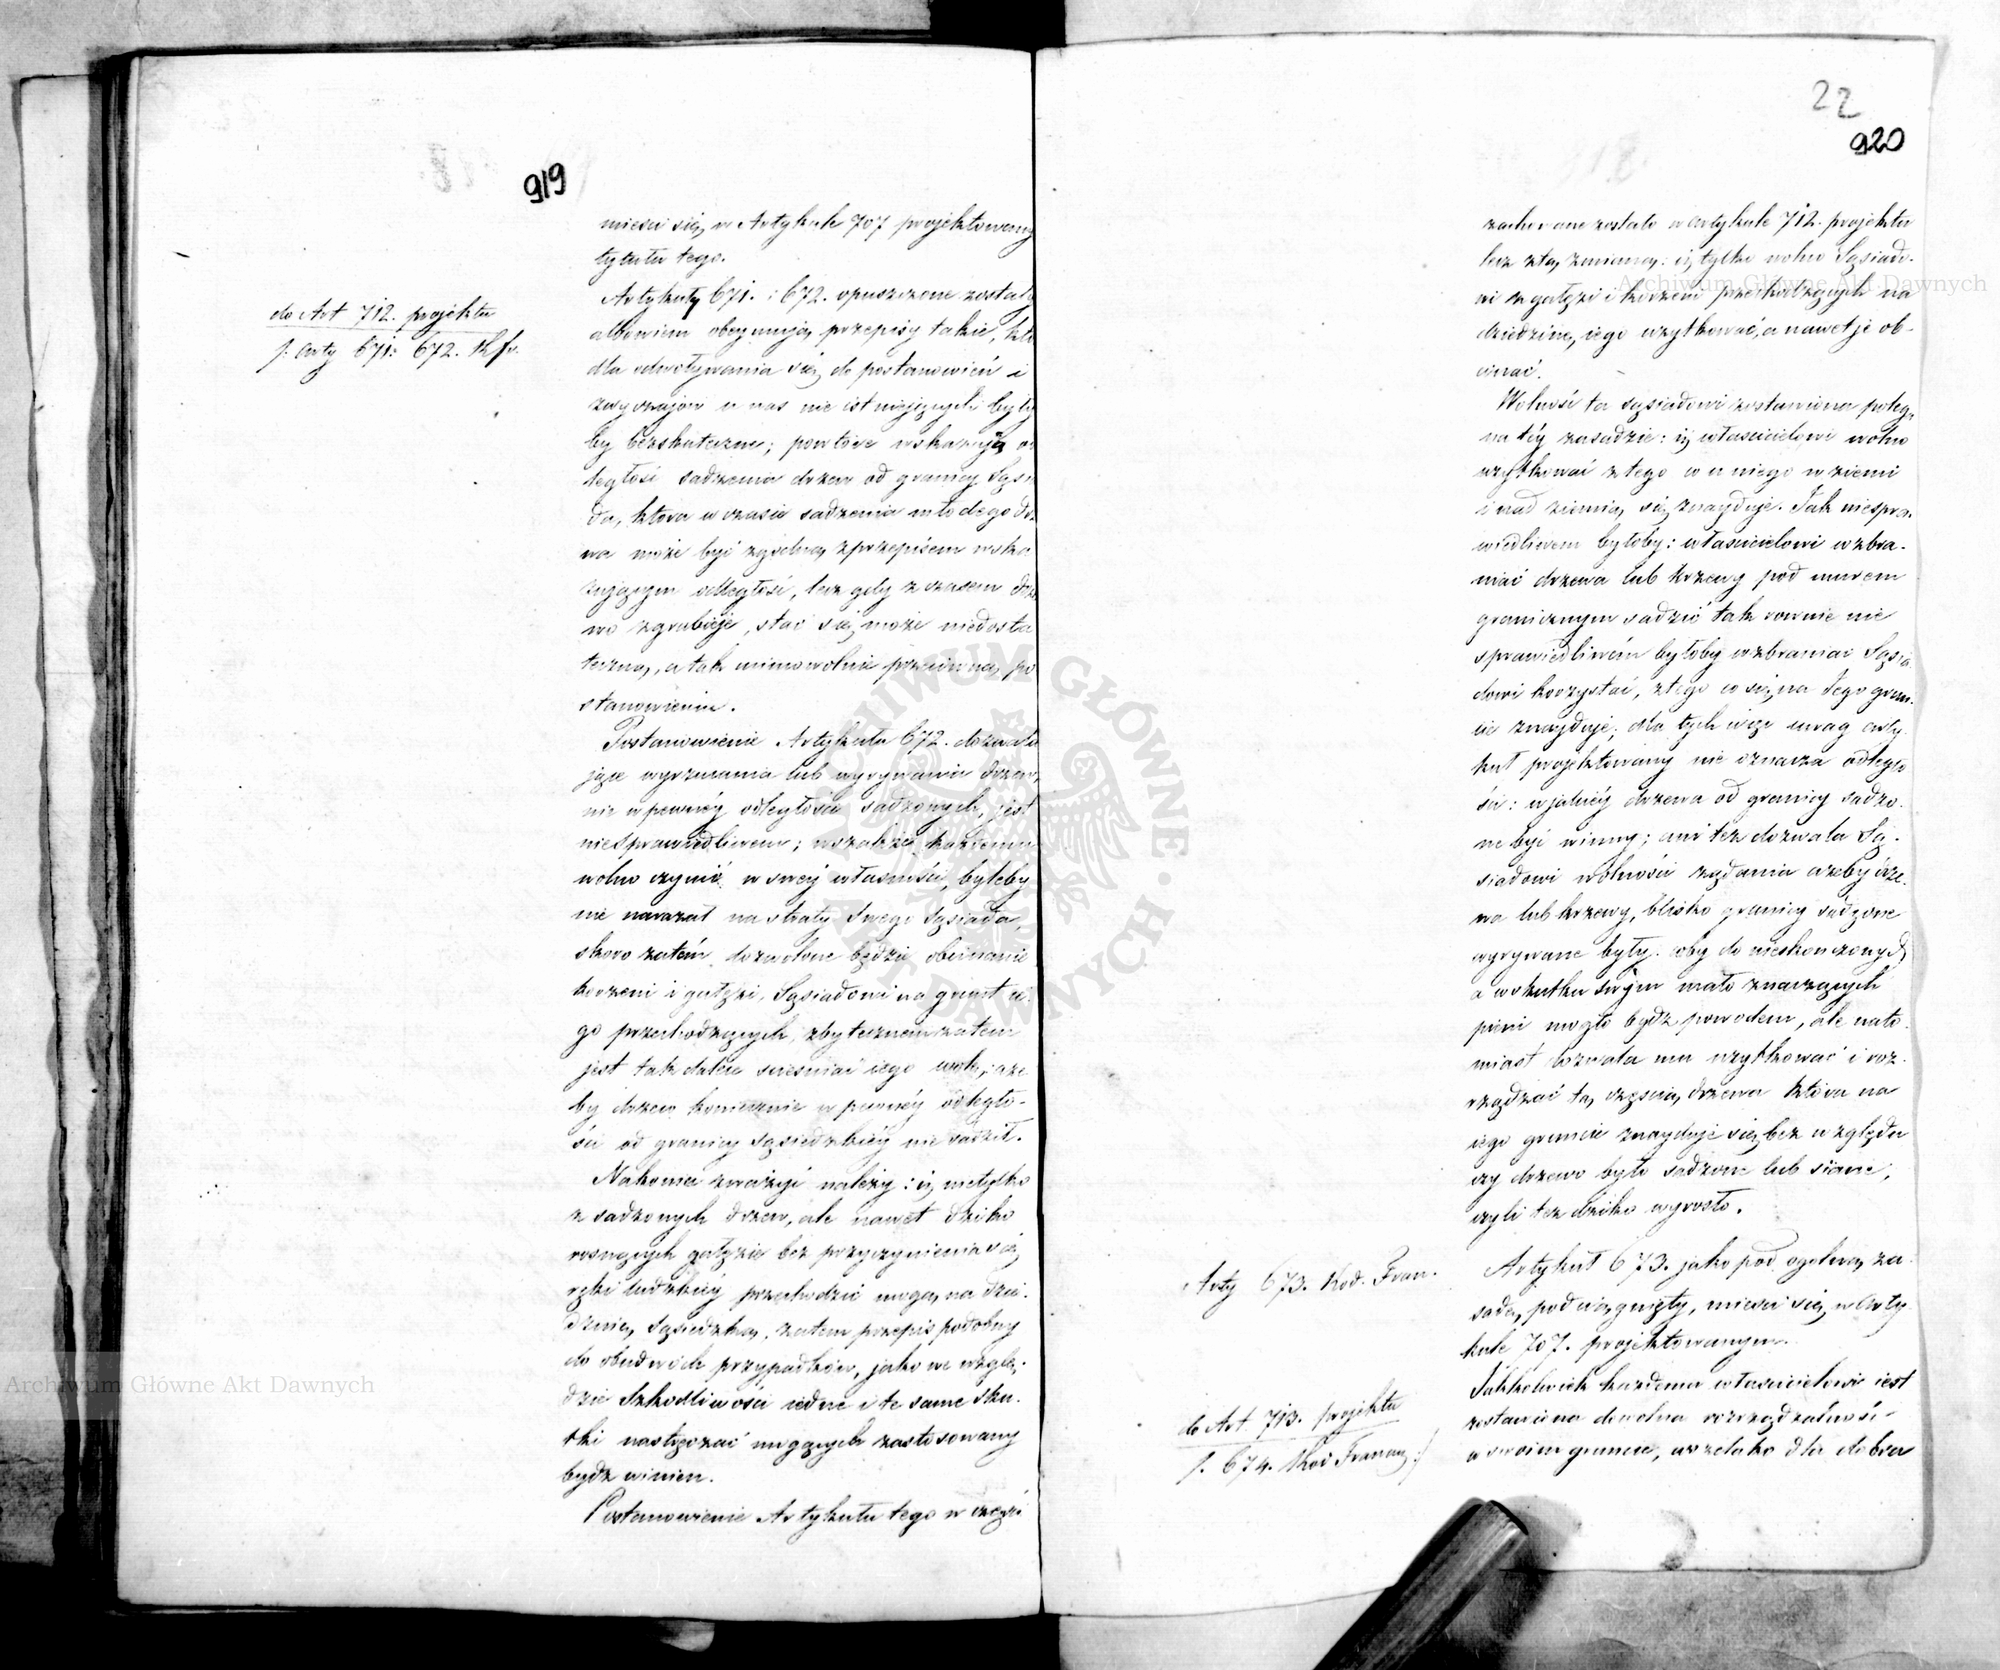 919
mieści się w Artykule 707 projektowany
tytułu tego.
do Art 712. projektu
f. arty 671: 672. Kfr.
Artykuły 671. i 672. opuszczone zostały
albowiem obeymują przepisy takie, któ
dla odwoływania się do postanowień i
zwyczajów u nas nie istniejących były
by bezskuteczne; powtóre wskazują od
ległość sadzenia drzew od granicy Sąsia
da, która w czasie sadzenia młodego drze
wa może być zgodną z przepisem wska
zującym odległość, lecz gdy z czasem drze
wo zgrubieje, stać się może niedosta
teczną, a tak mimowolnie przeciwną po
stanowieniu.
Postanowienie Artykułu 672. dozwala
jące wyrzucania lub wyrywania drzew,
nie w pewnéy odległości sadzonych, jest
niesprawiedliwem; wszakże każdemu
wolno czynić w swéj własności, byleby
nie narażał na straty Swego Sąsiada,
skoro zatém dozwolone będzie obcinanie
korzeni i gałęzi, Sąsiadowi na grunt ie
go przechodzących, zbytecznem zatem
jest tak dalece scieśniać iego wolę, aże
by drzew koniecznie w pewnéy odległo-
ści od granicy sąsiedzkiéy nie sadził.
Nakoniec zważyć należy: iż nietylko
z sadzonych drzew, ale nawet dziko
rosnących gałęzie bez przyczynienia się
ręki ludzkiéy przechodzić mogą na dzie-
dzinę Sąsiedzką, zatem przepis podobny
do obudwóch przypadków, jako we wzglę-
dzie Szkodliwości iedne i te same sku-
tki nastręczać mogących zastosowany
bydź winien.
Postanowienie Artykułu tego w części
22
920
zachowane zostało w artykule 712. projektu
lecz z tą zmianą: iż tylko wolno Sąsiado-
wi z gałęzi i korzeni przechodzących na
dziedzinę iego użytkować, a nawet je ob-
cinać.
Wolność ta sąsiadowi zostawiona polega
na téy zasadzie: iż właścicielowi wolno
użytkować z tego co u niego w ziemi
i nad ziemią się znayduje. Jak niespra-
wiedliwem byłoby: właścicielowi wzbra-
niać drzewa lub krzewy pod murem
granicznym sadzić tak rownie nie
sprawiedliwém byłoby wzbraniać Sąsia
dowi korzystać, z tego co się na Jego grun-
cie znayduje; dla tych więc uwag arty-
kuł projektowany nie oznacza odległo
ści: w jakiéy drzewa od granicy sadzo-
ne być winny; ani też dozwala Są-
siadowi wolności żądania ażeby drze-
wa lub krzewy, blisko granicy sadzone
wyrywane były. coby do nieskończonych
a w skutku swym mało znaczących
pieni mogło bydź powodem, ale nato-
miast dozwala mu użytkować i roz-
rządzać tą częścią drzewa która na
iego gruncie znayduje się bez względu
czy drzewo było sadzone lub siane,
czyli też dziko wyrosło.
Arty 673. Kod. Fran.
Artykuł 673. jako pod ogólną za-
sadę podciągnięty, mieści się w Arty
kule 707. projektowanym.
do Art. 713. projektu
f. 674. Kod Francuz:/
Jakkolwiek każdemu właścicielowi iest
zostawiona dowolna rozrządzalność
w swoim gruncie, wszelako dla dobra
Archiwum Główne Akt Dawnych
Archiwum Główne Akt Dawnych
ARCHIWUM GŁÓWNE AKT DAWNYCH